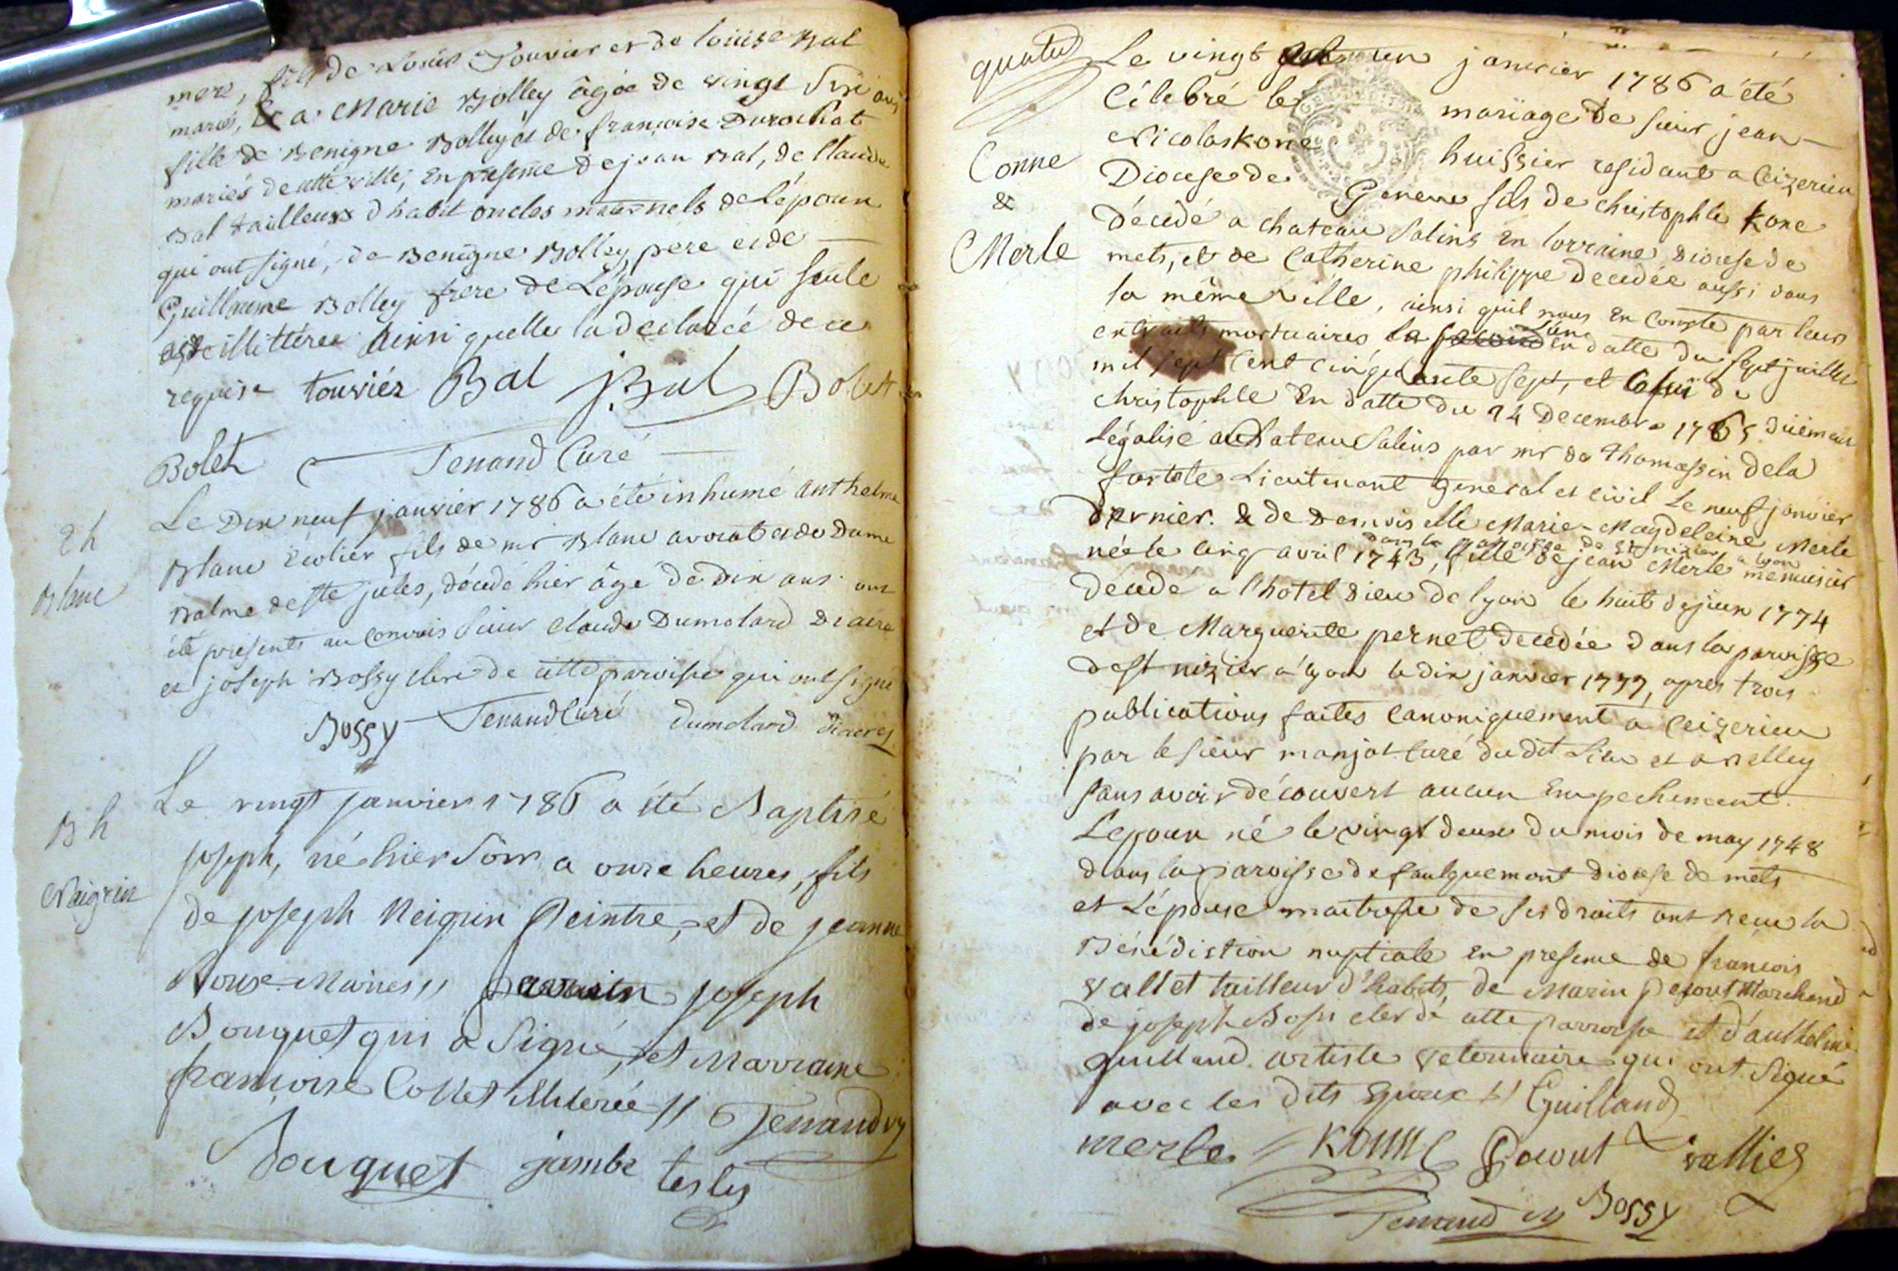 mere, fils de Louis Touvier et de louise Bal
mariés, & a Marie Bolley âgée de vingt six ans
fille de Benigne Bolley et de françoise Durochat
mariés de cette ville, En presence de jean Bal, de Claude
Bal tailleurs d'habit oncles maternels de L'époux
qui ont signé, de Benigne Bolley pere et de
Guillaume Bolley frere de L'épouse qui seule
est illittérée Ainsi quelle la declarée de ce
requise touviér Bal J. Bal Bolet
Bolet Tenand Curé
Eh
Blanc
Le Dix neuf janvier 1786 a été inhumé Anthelme
Blanc Ecolier fils de mr Blanc avocat et de Dame
Balme de Ste jules, décédé hier âgé de dix ans ont
été présents au convois sieur claude Dumolard Diacre
et joseph Bossy clerc de cette paroisse qui ont signé
Bossy Tenand Curé dumolard diacre
Bh
Naigrin
Le vingt janvier 1786 a été Baptisé
joseph, né hier soir a onze heures, fils
de joseph Neigrin Peintre, et de jeanne
Roux Mariés // parrain joseph
Bouquet qui a signé, et Marraine
françoise Collet illiterée // Tenand vy
Bouquet jambe
quatre
Conne
&
Merle
Le vingt un janvier 1786 a été
Célebré le mariage de sieur jean
Nicolas kone huissier residant a Ceizerieu
Diocese de Geneve fils de christophle kone
décédé a chateau Salins En lorraine Diocese de
mets, et de Catherine philippe decedée aussi dans
la même ville, ainsi quil nous En Compte par leurs
extraits mortuaires L'un En datte du sept juillet
mil sept Cent Cinquante sept, et Celui de
christophle En datte du 14 Decembre 1765 duëment
légalisé au Chateau Salins par mr de thomassin de la
fortele Lieutenant general et civil Le neuf janvier
dernier. & de Demoiselle Marie-Magdeleine Merle
dans la paroisse de St nizier a lyon
née le cinq avril 1743, fille de jean Merle menuisier
décédé a l'hotel Dieu de lyon le huit de juin 1774
et de Marguerite pernet decedée dans la paroisse
de St nizier a lyon le dix janvier 1777, apres trois
publications faites Canoniquement a Ceizerieu
par le sieur manjot Curé du dit Lieu et a Belley
sans avoir découvert aucun Empechement.
Lepoux né le vingt deux du mois de may 1748
dans la paroisse de faulquemont diocese de mets
et L'épouse maitresse de ses droits ont reçu la
Bénédiction nuptiale En presence de françois
vallet tailleur d'habits, de Marin pacout Marchand
de joseph Bossi clerc de cette parroisse et d'anthelme
guilland artiste veterinaire qui ont signé
avec les dits Epoux // Guilland
merle // Konne Pacout vallier
Tenand vy Bossy